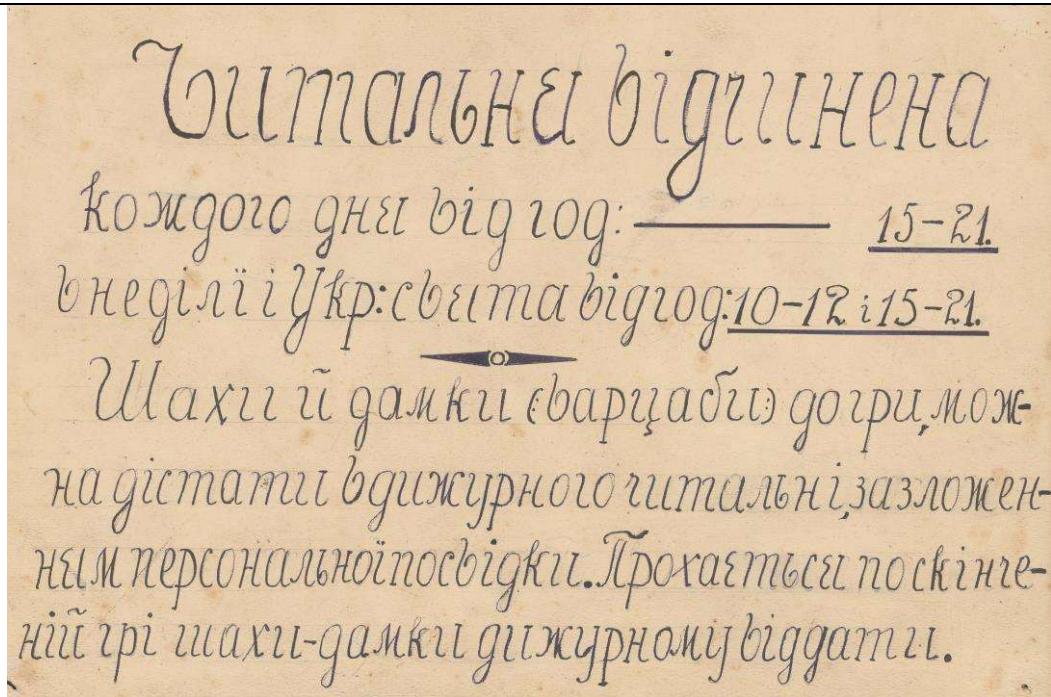 Читальня відчинена
кождого дня від год: 15-21.
в неділї і Укр: свята від год: 10-12 і 15-21.
Шахи й дамки (:варцаби:) до гри, мож-
на дістати в дижурного читальні, за зложен-
ням персональної посвідки. Прохається по скінче-
ній грі шахи-дамки дижурному віддати.